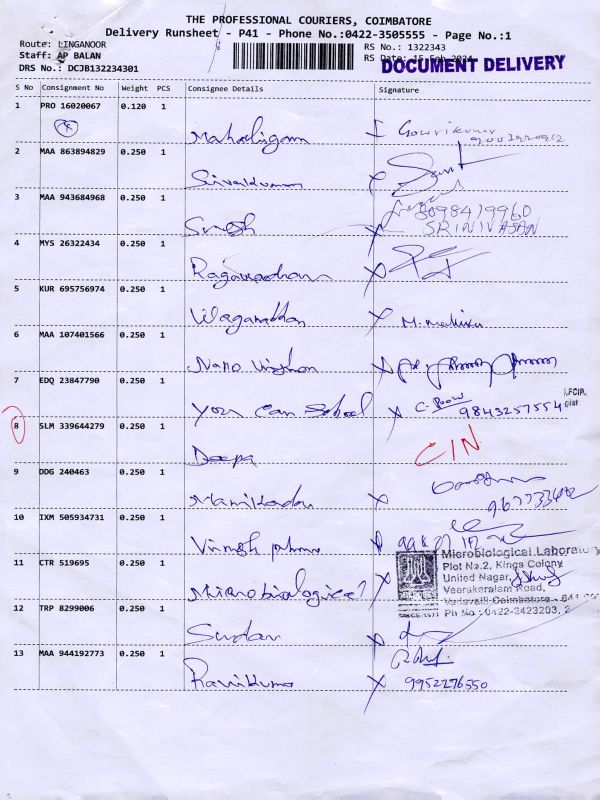 THE PROFESSIONAL COURIERS, COIMBATORE
Delivery Runsheet - P41 - Phone No.:0422-3505555 - Page No.:1
Route: LINGANOOR
Staff: AP BALAN
DRS No.: DCJB132234301
RS No.: 1322343
RS Date: 15 Feb 2024
DOCUMENT DELIVERY
S No Consignment No Weight PCS Consignee Details Signature
1 PRO 16020067 0.120 1
Mahalingam Gowrikumar
2 MAA 863894829 0.250 1
Sivakumar
3 MAA 943684968 0.250 1
Suresh 8098479960
SRINIVASAN
4 MYS 26322434 0.250 1
Ragavardhan
5 KUR 695756974 0.250 1
M. Mallika
6 MAA 107401566 0.250 1
Nano
7 EDQ 23847790 0.250 1
You Can School 9843257554
8 SLM 339644279 0.250 1
Deepa CIN
9 DDG 240463 0.250 1
Manikandan
10 IXM 505934731 0.250 1
11 CTR 519695 0.250 1
Microbiological
Microbiological Laboratory
Plot No.2, Kings Colony
United Nagar,
Veerakeralam Road,
Vadavalli Coimbatore - 641
Ph No : 0422-2423203, 2
SINCE-1971
12 TRP 8299006 0.250 1
Sudar
13 MAA 944192773 0.250 1
Ravikumar 9952276550